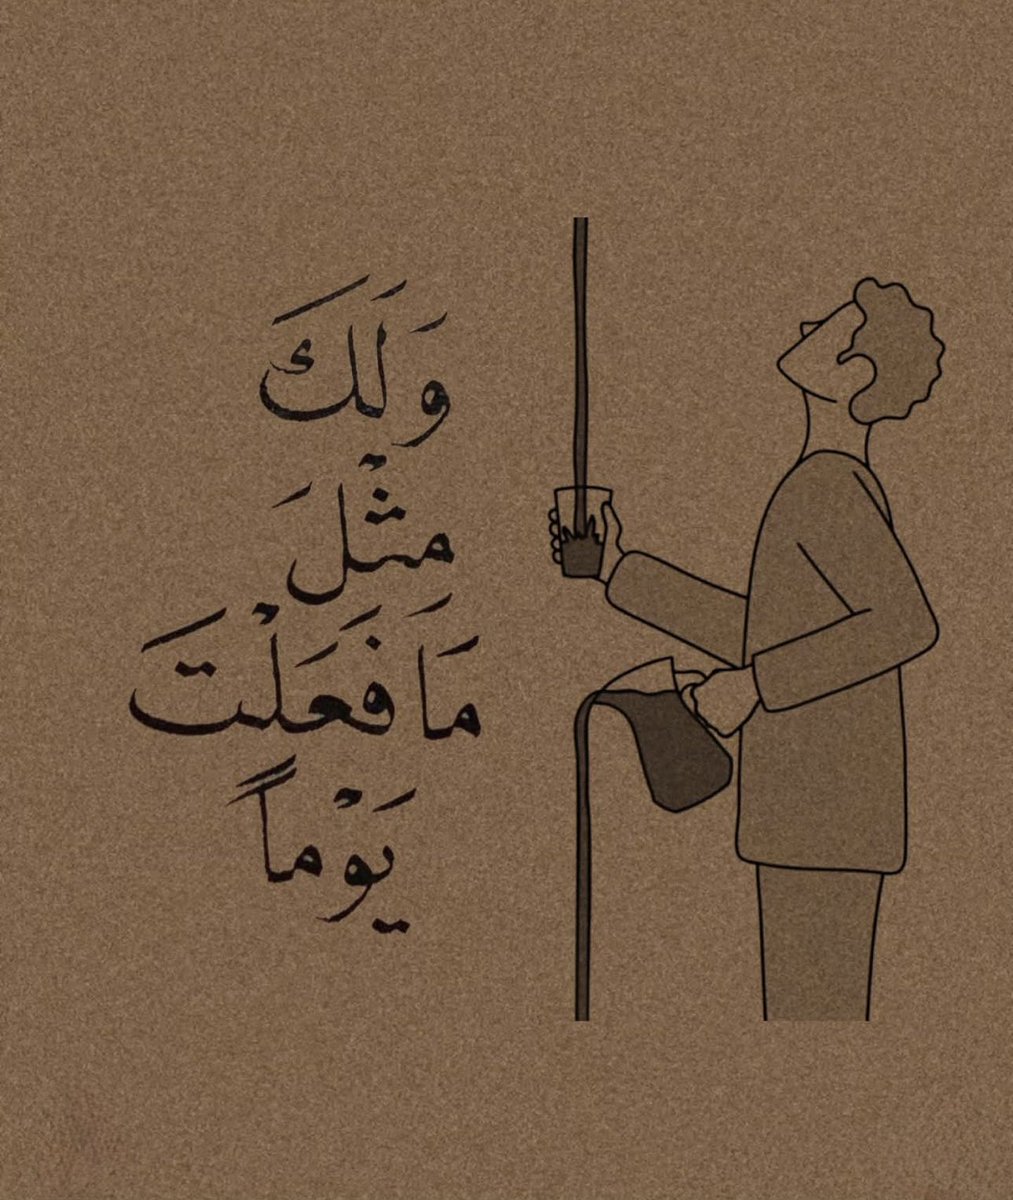 وَلَكَ
مثْلَ
مَا فَعَلْتَ
يَوْماً